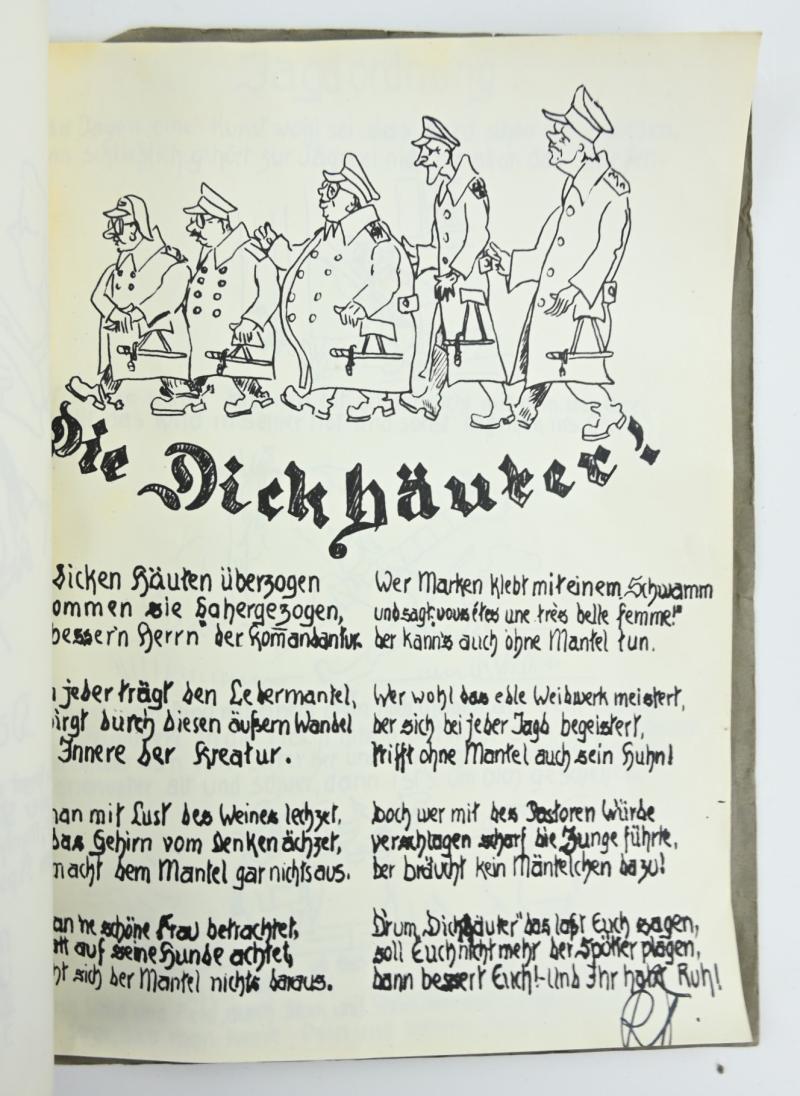 Die Dickhäuter!
Dicken Häuten überzogen
ommen sie dahergezogen,
besser'n Herrn" der Komandantur.
jeder trägt den Ledermantel,
irgt durch diesen äußern Wandel
Innere der Kreatur.
man mit Lust des Weines lechzet,
das Gehirn vom Denken ächzet,
macht dem Mantel gar nichts aus.
an 'ne schöne Frau betrachtet,
att auf seine Hunde achtet,
ht sich der Mantel nichts daraus.
Wer Marken klebt mit einem Schwamm
und sagt: "vous êtes une très belle femme!"
der kann's auch ohne Mantel tun.
Wer wohl das edle Weidwerk meistert,
der sich bei jeder Jagd begeistert,
trifft ohne Mantel auch sein Huhn!
Doch wer mit des Pastoren Würde
verschlagen scharf die Zunge führte,
der braucht kein Mäntelchen dazu!
Drum „Dickhäuter" das laßt Euch sagen,
soll Euch nicht mehr der Spötter plagen,
dann bessert Euch! - Und Ihr habt Ruh!